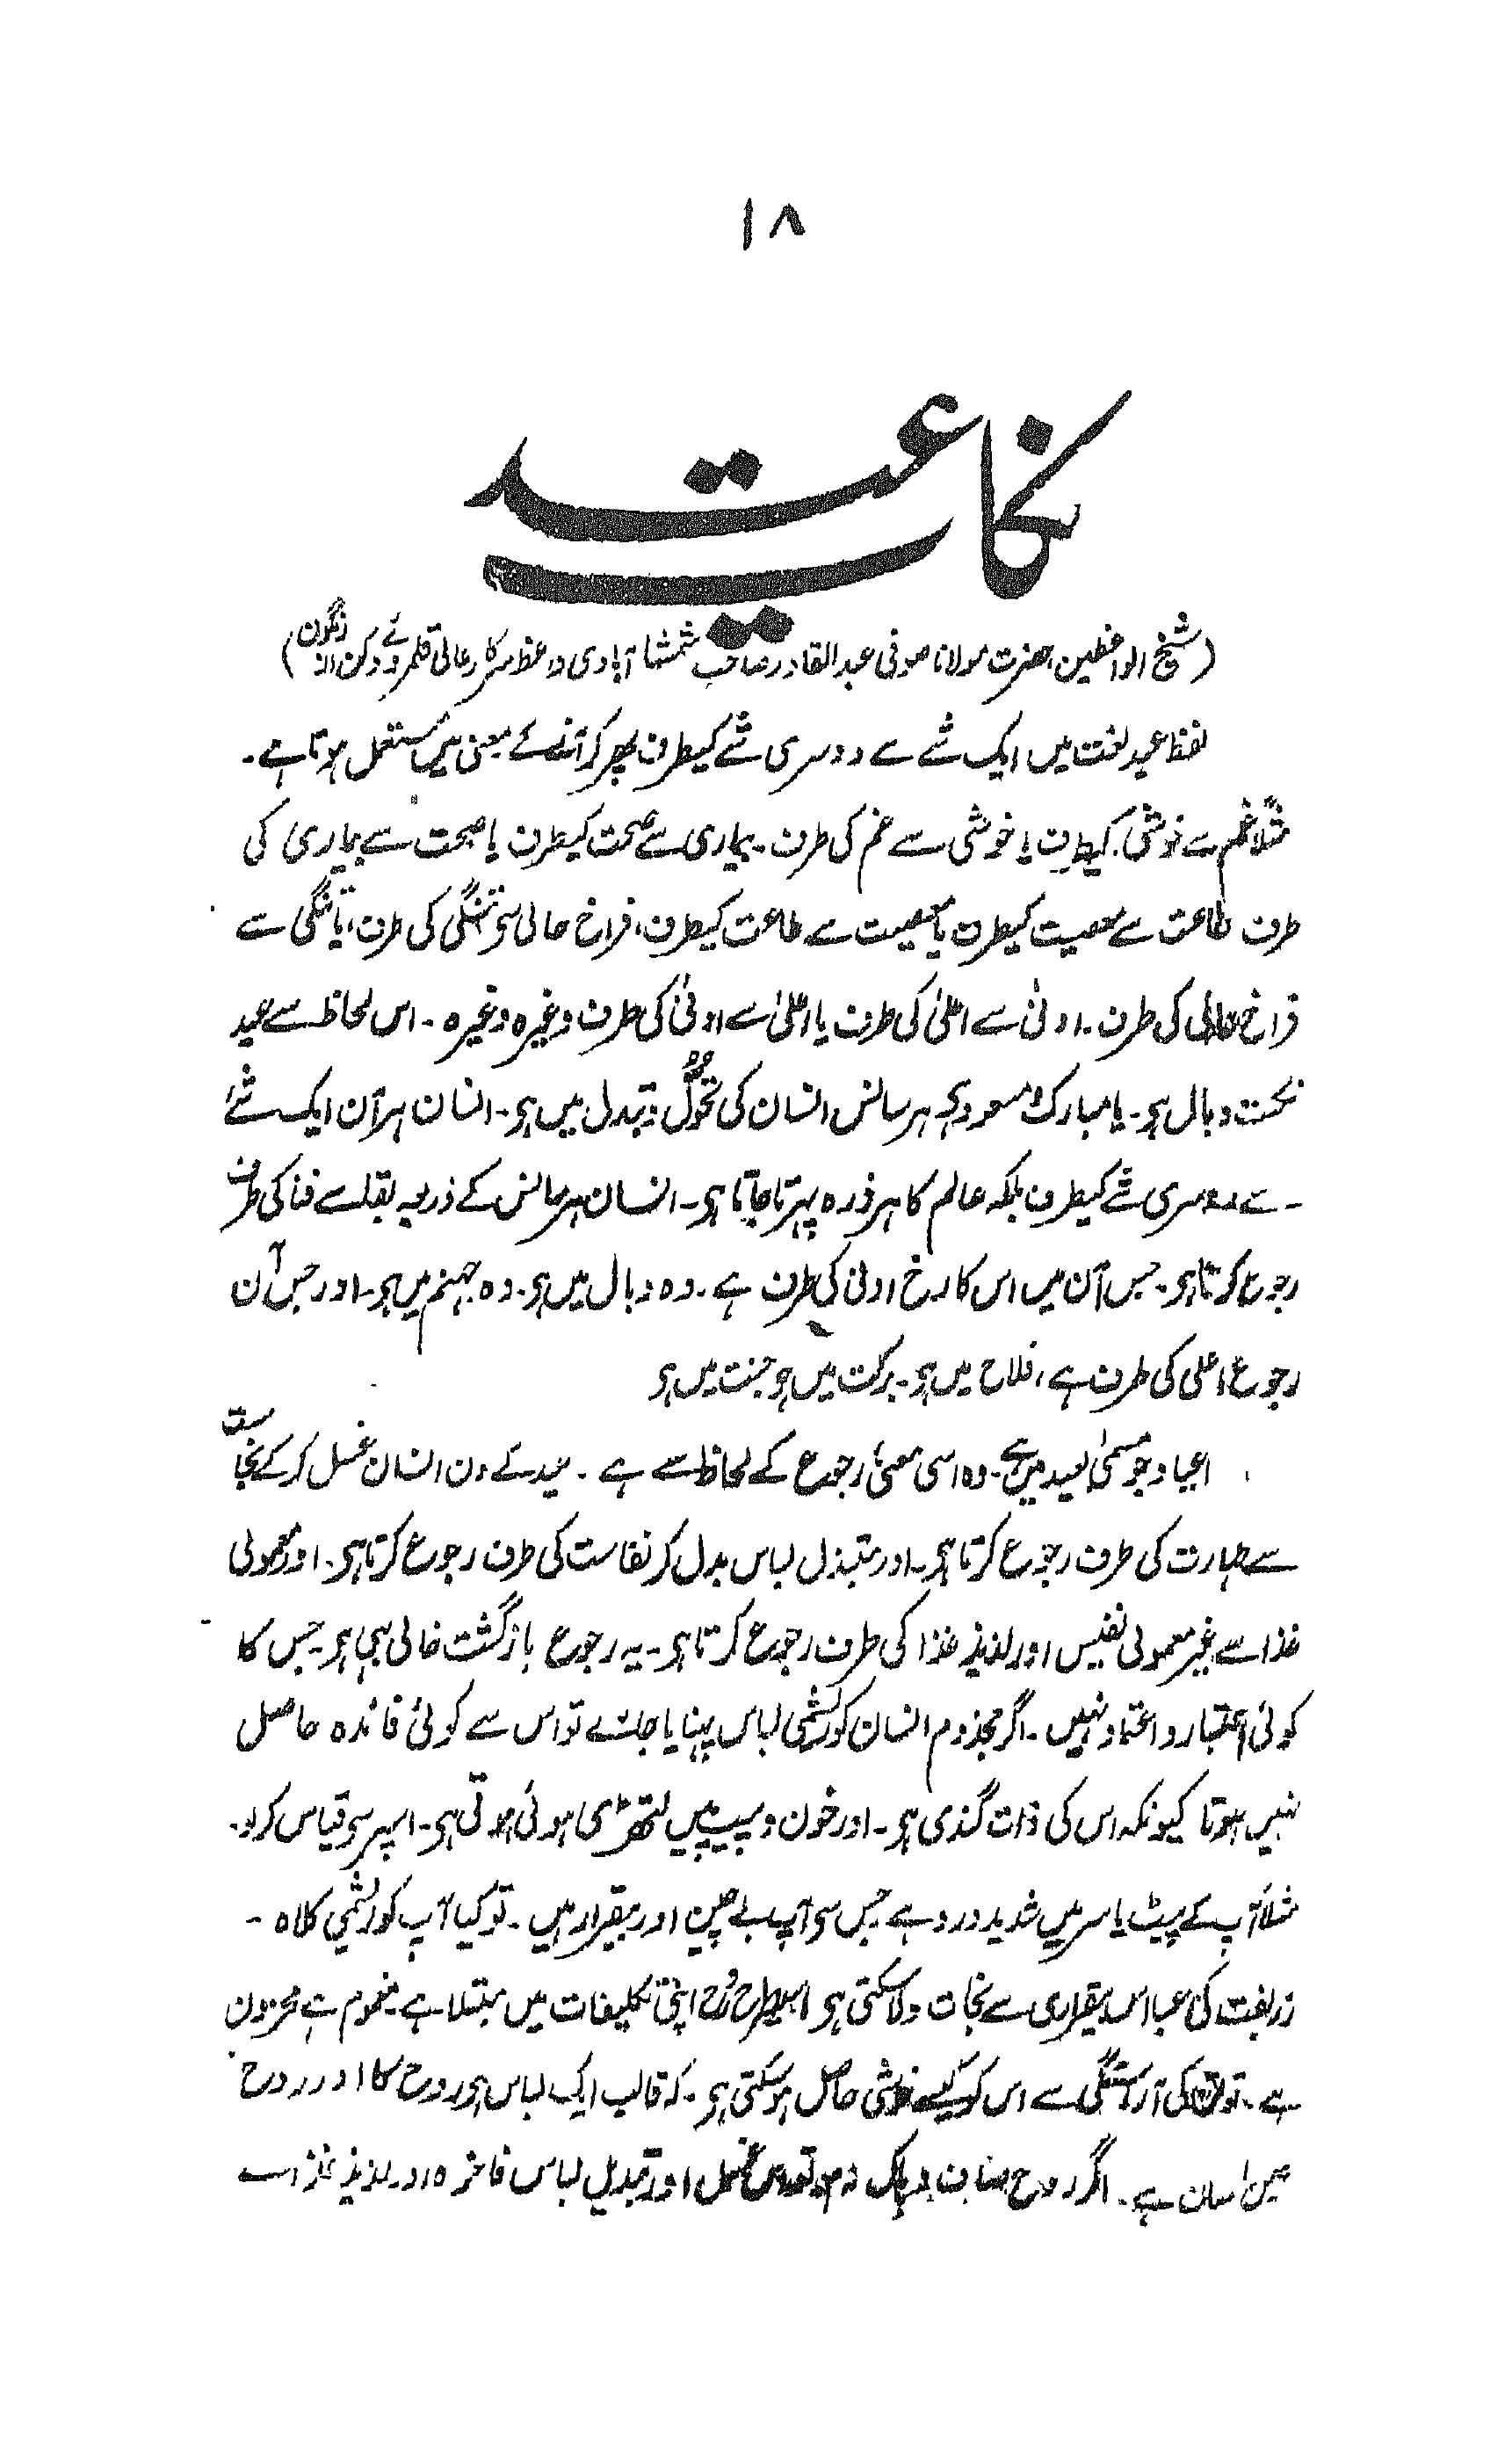 ۱۸
نکات عید
(شیخ الواعظین حضرت مولانا صوفی عبدالقادر صاحب شمشاآبادی واعظ سرکار عالی قلمروئے دکن از رنگون)
لفظ عید لغت میں ایک شے سے دوسری شے کیطرف پھر کر آنے کے معنی میں مستعمل ہوتا ہے۔
مثلاً غم سے خوشی کیطرف یا خوشی سے غم کی طرف۔ بیماری سے صحت کیطرف یا صحت سے بیماری کی
طرف طاعت سے معصیت کیطرف یا معصیت سے طاعت کیطرف، فراخ حالی سو تنگی کی طرف، یا تنگی سے
فراخ حالی کی طرف۔ ادنیٰ سے اعلیٰ کی طرف یا اعلیٰ سے ادنیٰ کی طرف وغیرہ وغیرہ۔ اس لحاظ سے عید
نحست و بال ہو۔ یا مبارک و مسعود ہو ہر سانس انسان کی تحوُّل و تبدل میں ہو۔ انسان ہر آن ایک شئے
سے دوسری شے کیطرف بلکہ عالم کا ہر ذرہ پہرتا جاتا ہو۔ انسان ہر سانس کے ذریعہ بقا سے فنا کی طرف
رجوع کرتا ہو۔ جس آن میں اس کا رخ ادنی کی طرف ہے۔ وہ وبال میں ہو۔ وہ جہنم میں ہو۔ اور جس آن
رجوع اعلی کی طرف ہے، فلاح میں ہو۔ برکت میں ہو جنت میں ہو
اعیاد جو مسمیٰ بعید ہیں۔ وہ اسی معنیٰ رجوع کے لحاظ سے ہے۔ عید کے دن انسان غسل کر کے نجاست
سے طہارت کی طرف رجوع کرتا ہو۔ اور متبذل لباس بدل کر نفاست کی طرف رجوع کرتا ہو۔ اور معمولی
غذا سے غیر معمولی نفیس اور لذیذ غذا کی طرف رجوع کرتا ہو۔ یہ رجوع بازگشت خالی ہی ہو۔ جس کا
کوئی اعتبار و اعتماد نہیں۔ اگر مجذوم انسان کو ریشمی لباس پہنایا جائے تو اس سے کوئی فائدہ حاصل
نہیں ہوتا کیونکہ اس کی ذات گندی ہو۔ اور خون و پیپ میں لتھڑی ہوئی ہوتی ہو۔ اسپر سو قیاس کرلو۔
مثلاً آپ کے پیٹ یا سر میں شدید درد ہے جس سو آپ بے چین اور بیقرار ہیں۔ تو کیا آپ کو ریشمی کلاہ۔
زربفت کی عبا اس بیقراری سے نجات دلا سکتی ہو اسیطرح رُوح اپنی تکلیفات میں مبتلا ہے۔ مغموم ہے محزون
ہے۔ تو تن کی آراستگی سے اس کو کیسے خوشی حاصل ہو سکتی ہو۔ کہ قالب ایک لباس ہو روح کا اور روح
عین انسان ہے۔ اگر روح صاف و پاک نہ ہو تو اس غسل اور تبدیل لباس فاخرہ اور لذیذ غذا سے